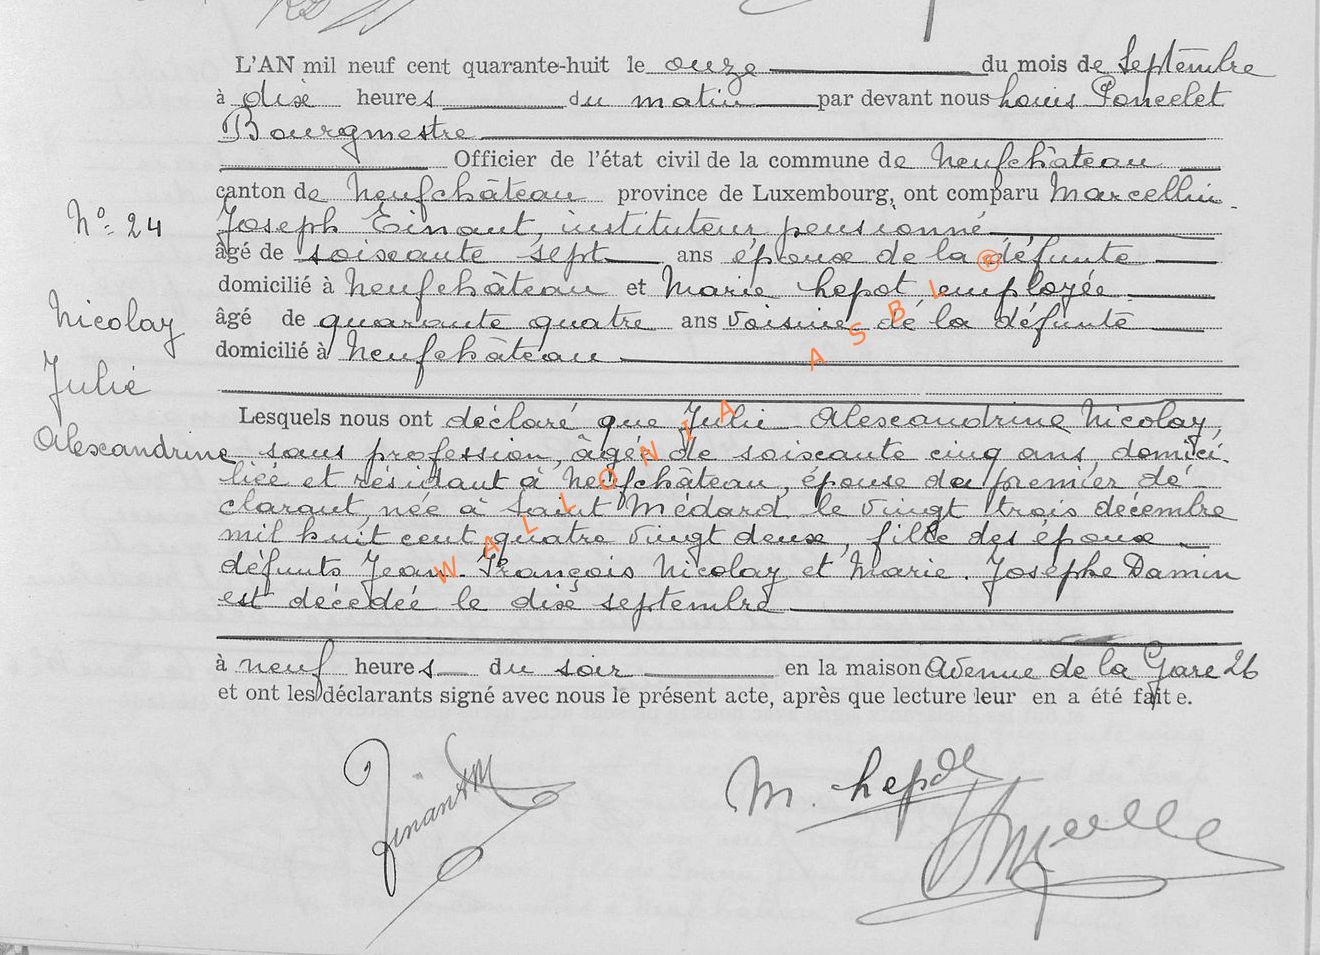 L'AN mil neuf cent quarante-huit le onze du mois de Septembre
à dix heures du matin par devant nous Louis Poncelet
Bourgmestre
Officier de l'état civil de la commune de Neufchâteau
canton de Neufchâteau province de Luxembourg, ont comparu Marcellin
N° 24
Joseph Zinant, instituteur pensionné
âgé de soixante sept ans époux de la défunte
domicilié à Neufchâteau et Marie employée
Nicolay
âgé de quarante quatre ans voisine de la défunte
domicilié à Neufchâteau
Julie
Lesquels nous ont déclaré que Julie Alexandrine Nicolay,
Alexandrine
sans profession, âgée de soixante cinq ans, domici-
liée et résidant à Neufchâteau, épouse du premier dé-
clarant, née à Saint Médard le vingt trois décembre
mil huit cent quatre vingt deux, fille des époux
défunts Jean-François Nicolay et Marie-Josèphe Damin
est décédée le dix septembre
à neuf heures du soir en la maison Avenue de la Gare 26
et ont les déclarants signé avec nous le présent acte, après que lecture leur en a été faite.
Zinant M
M.
WALLONIA ASBL ®